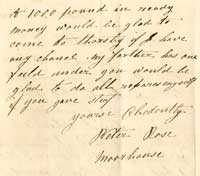 A 1000 pound in ready
money would be glad to
come to thorsby if I have
any chance my farther has one
feild under you would be
glad to do all repares myself
if you gave stuf
yourse Obediently
Peter Rose
Moorhouse